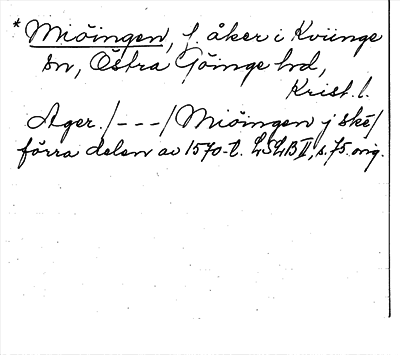 * Miöingen, f. åker i Kviinge
sn, Östra Göinge hd,
Krist. l.
Ager. /---/ Miöingen j ske/
förra delen av 1570-t. LSLB II, s. 75 orig.